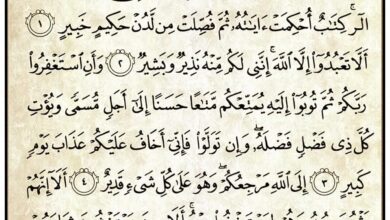 الٓرۚ كِتَٰبٌ أُحۡكِمَتۡ ءَايَٰتُهُۥ ثُمَّ فُصِّلَتۡ مِن لَّدُنۡ حَكِيمٍ خَبِيرٍ ١
أَلَّا تَعۡبُدُوٓاْ إِلَّا ٱللَّهَۚ إِنَّنِي لَكُم مِّنۡهُ نَذِيرٞ وَبَشِيرٞ ٢ وَأَنِ ٱسۡتَغۡفِرُواْ
رَبَّكُمۡ ثُمَّ تُوبُوٓاْ إِلَيۡهِ يُمَتِّعۡكُم مَّتَٰعًا حَسَنًا إِلَىٰٓ أَجَلٖ مُّسَمّٗى وَيُؤۡتِ
كُلَّ ذِي فَضۡلٖ فَضۡلَهُۥۖ وَإِن تَوَلَّوۡاْ فَإِنِّيٓ أَخَافُ عَلَيۡكُمۡ عَذَابَ يَوۡمٖ
كَبِيرٍ ٣ إِلَى ٱللَّهِ مَرۡجِعُكُمۡۖ وَهُوَ عَلَىٰ كُلِّ شَيۡءٖ قَدِيرٌ ٤ أَلَآ إِنَّهُمۡ